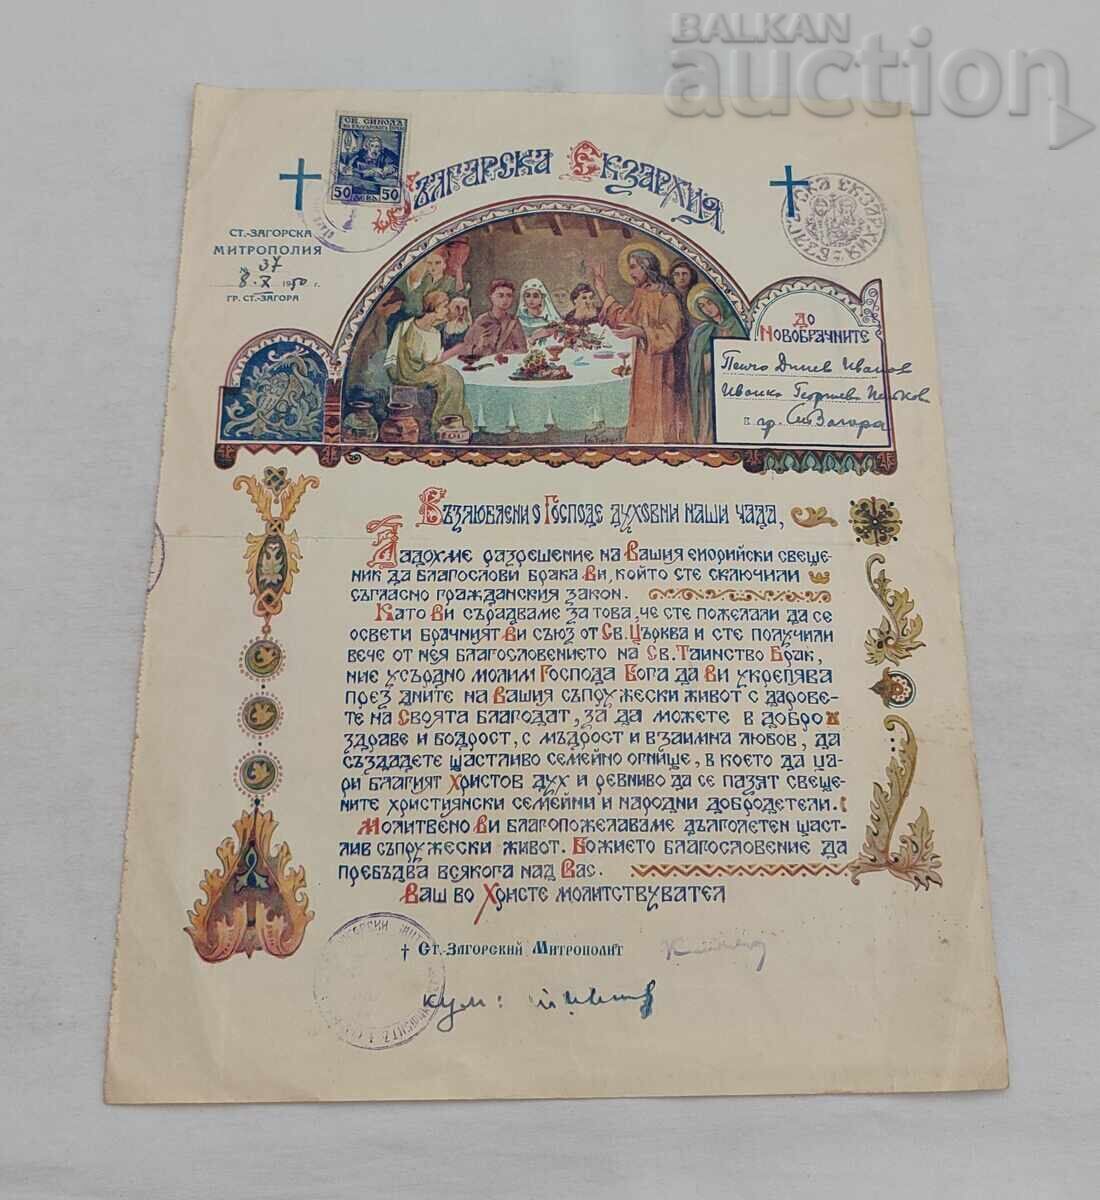 BALKAN
auction
СВ. СИНОДЪ
50 ЛЕВА 50
БЪЛГАРСКА ЕКЗАРХИЯ
СТ.-ЗАГОРСКА
МИТРОПОЛИЯ
№ 37
8. X 1950 г.
ГР. СТ.-ЗАГОРА
ДО
НОВОБРАЧНИТЕ
Пенчо Динев Иванов
Иванка Георгиева
в гр. Ст. Загора
ВЪЗЛЮБЛЕНИ О ГОСПОДЕ ДУХОВНИ НАШИ ЧАДА,
ДАДОХМЕ РАЗРЕШЕНИЕ НА ВАШИЯ ЕНОРИЙСКИ СВЕЩЕ-
НИК ДА БЛАГОСЛОВИ БРАКА ВИ, КОЙТО СТЕ СКЛЮЧИЛИ
СЪГЛАСНО ГРАЖДАНСКИЯ ЗАКОН.
КАТО ВИ СЪРАДВАМЕ ЗА ТОВА, ЧЕ СТЕ ПОЖЕЛАЛИ ДА СЕ
ОСВЕТИ БРАЧНИЯТ ВИ СЪЮЗ ОТ СВ. ЦЪРКВА И СТЕ ПОЛУЧИЛИ
ВЕЧЕ ОТ НЕЯ БЛАГОСЛОВЕНИЕТО НА СВ. ТАИНСТВО БРАК,
НИЕ УСЪРДНО МОЛИМ ГОСПОДА БОГА ДА ВИ УКРЕПЯВА
ПРЕЗ ДНИТЕ НА ВАШИЯ СЪПРУЖЕСКИ ЖИВОТ С ДАРОВЕ-
ТЕ НА СВОЯТА БЛАГОДАТ, ЗА ДА МОЖЕТЕ В ДОБРО
ЗДРАВЕ И БОДРОСТ, С МЪДРОСТ И ВЗАИМНА ЛЮБОВ, ДА
СЪЗДАДЕТЕ ЩАСТЛИВО СЕМЕЙНО ОГНИЩЕ, В КОЕТО ДА ЦА-
РИ БЛАГИЯТ ХРИСТОВ ДУХ И РЕВНИВО ДА СЕ ПАЗЯТ СВЕЩЕ-
НИТЕ ХРИСТИЯНСКИ СЕМЕЙНИ И НАРОДНИ ДОБРОДЕТЕЛИ.
МОЛИТВЕНО ВИ БЛАГОПОЖЕЛАВАМЕ ДЪЛГОЛЕТЕН ЩАСТ-
ЛИВ СЪПРУЖЕСКИ ЖИВОТ. БОЖИЕТО БЛАГОСЛОВЕНИЕ ДА
ПРЕБЪДВА ВСЯКОГА НАД ВАС.
ВАШ ВО ХРИСТЕ МОЛИТСТВУВАТЕЛ
† СТ.-ЗАГОРСКИЙ МИТРОПОЛИТ
кум: